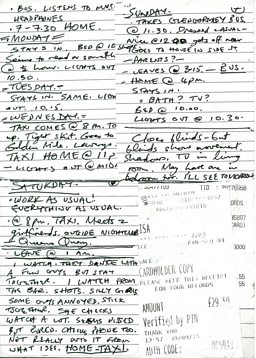 • BUS. LISTENS TO MUSIC
HEADPHONES
• 7-7.30 HOME.
~ MONDAY ~
STAYS IN. BED @ 10
Seems to read or something
@ ½ hour. LIGHTS OUT
10.30.
~ TUESDAY ~
STAYS IN. SAME. LIGH
OUT. 10.15.
~ WEDNESDAY ~
TAXI COMES @ 8 P.M. TO
up. Tight skirt. Goes to
Golden Mile. Lawrys.
TAXI HOME @ 11 P.
• LIGHTS OUT @ MIDN
SATURDAY
• WORK AS USUAL.
EVERYTHING AS USUAL.
• @ 8 PM. TAXI. Meets 2
girlfriends. OUTSIDE NIGHTCLUB
Queens Quay.
• LEAVE @ 1 AM.
I WATCH. THEY DANCE WITH
A FEW GUYS BUT STAY
TOGETHER. I WATCH FROM
THE BAR. SHOTS. SILLY GIRLS
SOME GUYS ANNOYED. STICK
TOGETHER. SHE CHECKS
WATCH A LOT. SEEMS PISSED
BUT BORED. CHECKS PHONE TOO.
NOT REALLY INTO IT FROM
WHAT I SEE. HOME TAXI
SUNDAY.
• TAKES GLENGORMLEY BUS
@ 11.30. Dressed casual
Nice @ 12.00 gets off near
GOES TO HOUSE IN SIDE ST
- PARENTS? -
- LEAVES @ 3.15. - BUS.
• HOME @ 4 PM.
STAYS IN.
• BATH? TV?
BED @ 10.00.
LIGHTS OUT @ 10.30.
Close blinds - but
blinds show movement,
Shadows, TV in living
room. Very last on in
bedroom too. I'LL SEE TOMORROW
TID
VISA
CARDHOLDER COPY
PLEASE KEEP THIS RECEIPT
FOR YOUR RECORDS
AMOUNT
£29.59
Verified by PIN
THANK YOU
12:57
AUTH CODE: